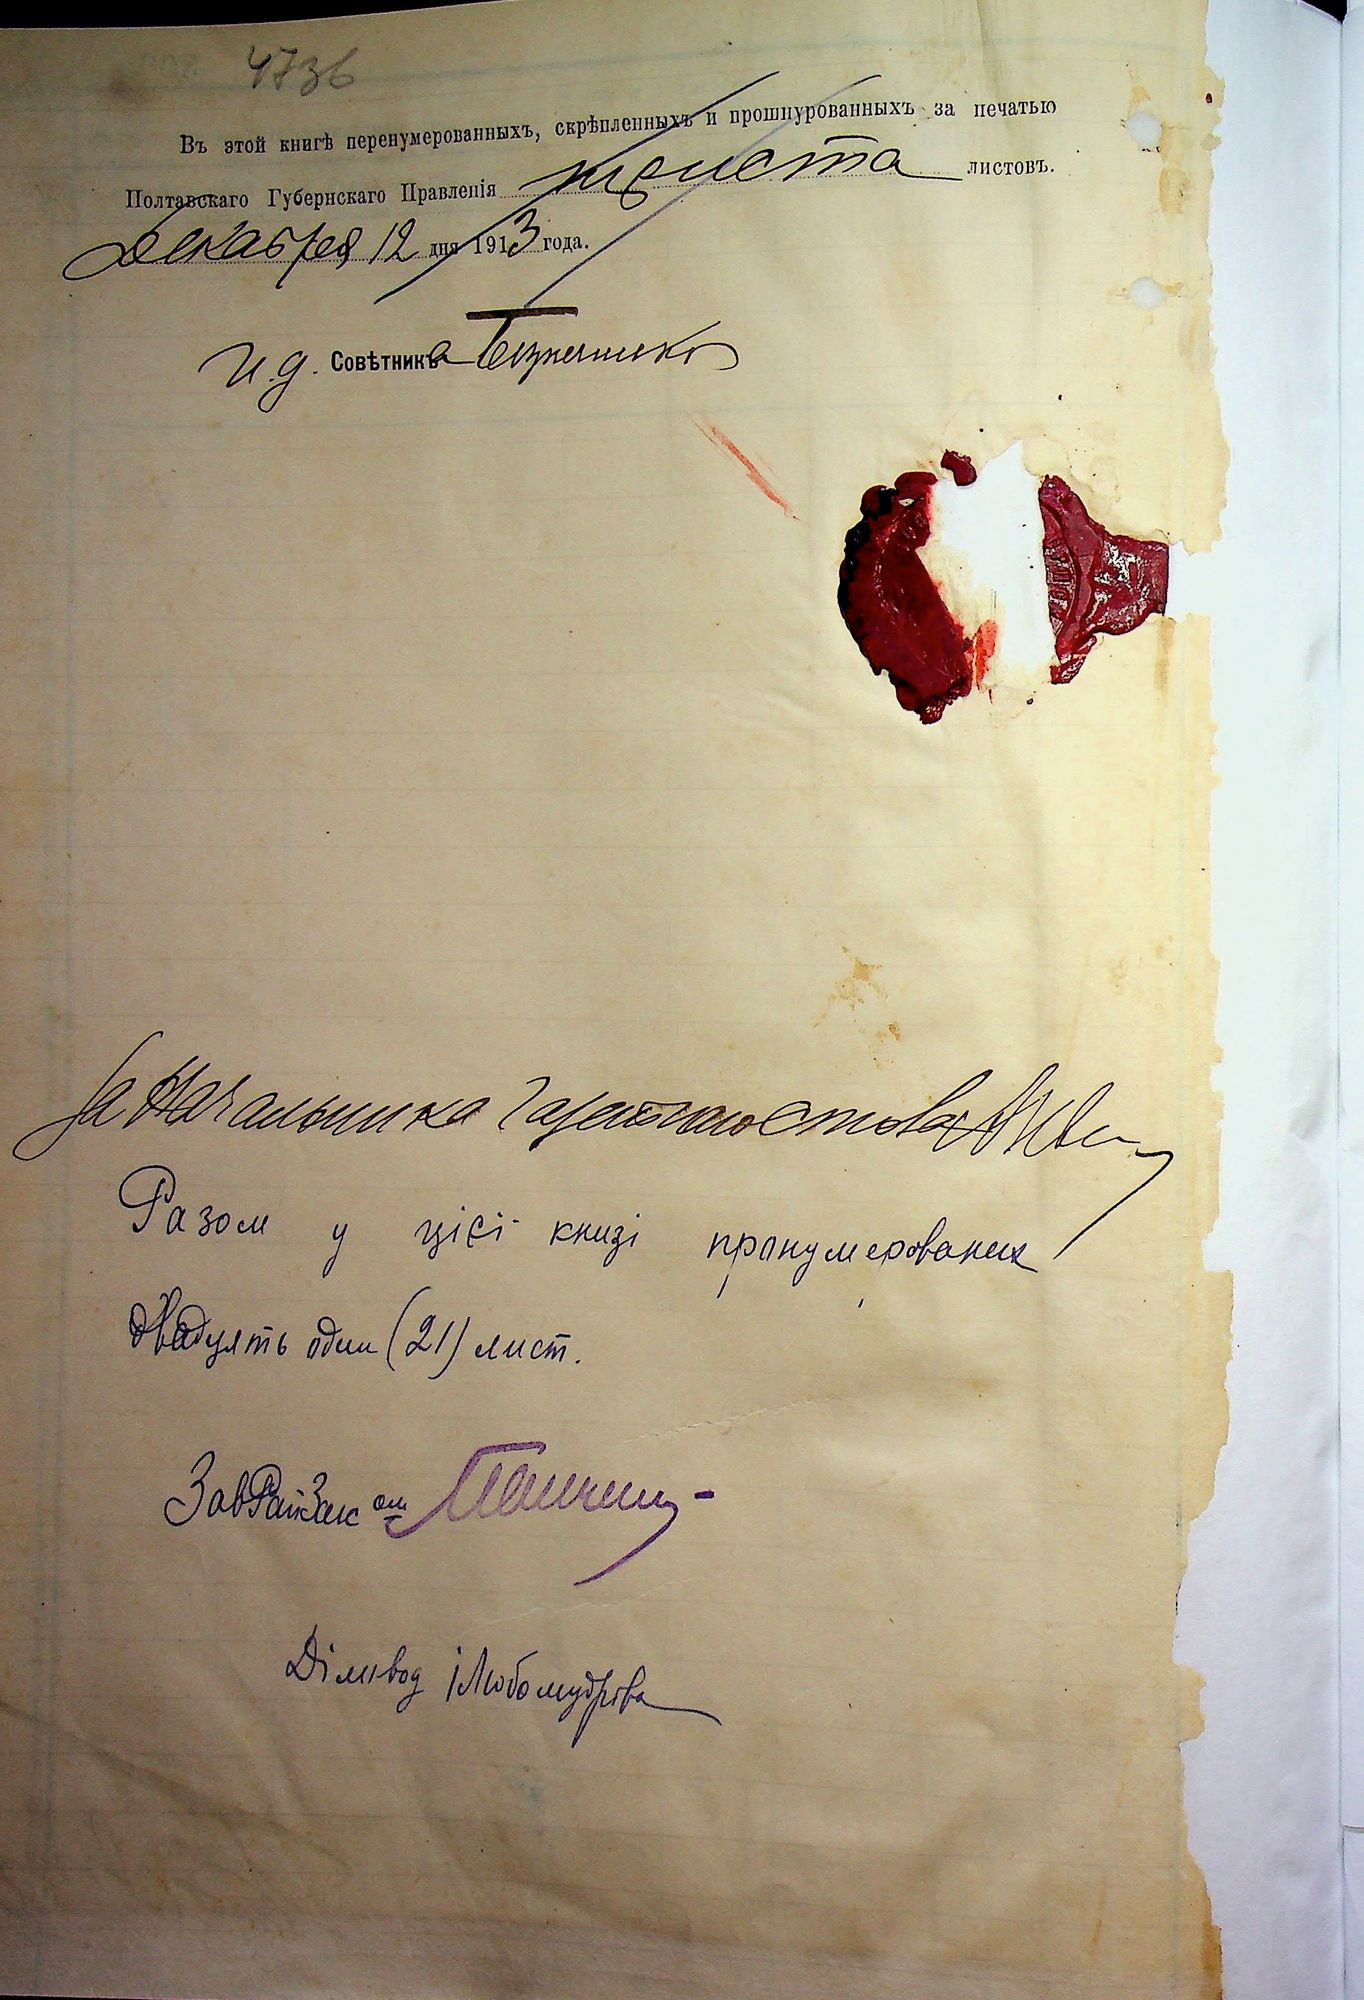 473б
Въ этой книгѣ перенумерованныхъ, скрѣпленныхъ и прошнурованныхъ за печатью
Полтавскаго Губернскаго Правленія триста листовъ.
Декабря 12 дня 1913 года.
И.д. Совѣтника
За Начальника
Разом у цієї книзі пронумерованих
двадцять один (21) лист.
ЗавРайЗагсом
Діловод Любомудрова